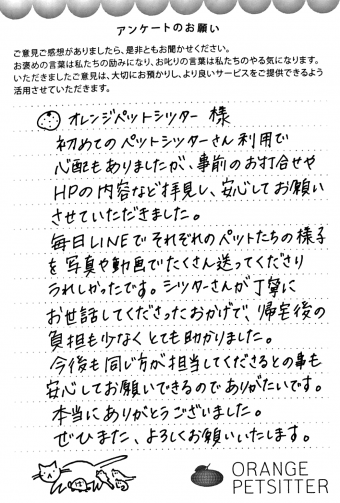 アンケートのお願い
ご意見ご感想がありましたら、是非ともお聞かせください。
お褒めの言葉は私たちの励みになり、お叱りの言葉は私たちのやる気になります。
いただきましたご意見は、大切にお預かりし、より良いサービスをご提供できるよう
活用させていただきます。
オレンジペットシッター 様
初めてのペットシッターさん利用で
心配もありましたが、事前のお打合せや
HPの内容など拝見し、安心してお願い
させていただきました。
毎日LINEでそれぞれのペットたちの様子
を写真や動画でたくさん送ってくださり
うれしかったです。シッターさんが丁寧に
お世話してくださったおかげで、帰宅後の
負担も少なくとても助かりました。
今後も同じ方が担当してくださるとの事も
安心してお願いできるのでありがたいです。
本当にありがとうございました。
ぜひまた、よろしくお願いいたします。
ORANGE
PETSITTER